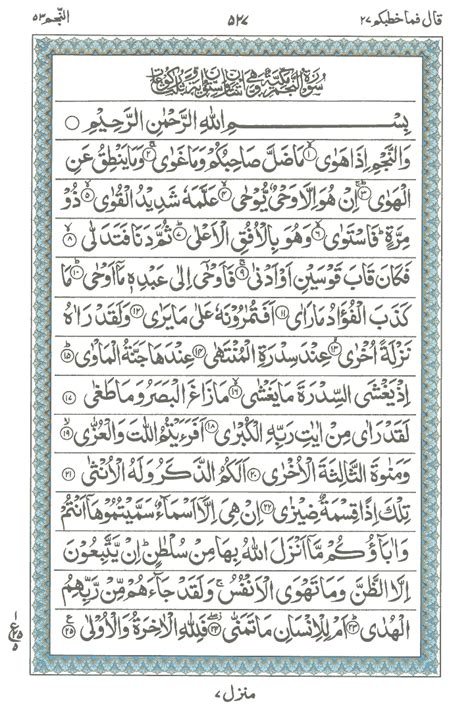 قال فما خطبكم ٢٧
٥٢٧
النجم ٥٣
سُوْرَةُ النَّجْمِ مَكِّيَّةٌ وَّهِيَ اثْنَتَانِ وَسِتُّوْنَ اٰيَةً وَّثَلٰثُ رُكُوْعَاتٍ
بِسْمِ اللهِ الرَّحْمٰنِ الرَّحِيْمِ ○
وَالنَّجْمِ اِذَا هَوٰى ۙ﴿١﴾ مَا ضَلَّ صَاحِبُكُمْ وَمَا غَوٰى ۚ﴿٢﴾ وَمَا يَنْطِقُ عَنِ
الْهَوٰى ؕ﴿٣﴾ اِنْ هُوَ اِلَّا وَحْيٌ يُّوْحٰى ۙ﴿٤﴾ عَلَّمَهٗ شَدِيْدُ الْقُوٰى ۙ﴿٥﴾ ذُوْ
مِرَّةٍ ؕ فَاسْتَوٰى ۙ﴿٦﴾ وَهُوَ بِالْاُفُقِ الْاَعْلٰى ؕ﴿٧﴾ ثُمَّ دَنَا فَتَدَلّٰى ۙ﴿٨﴾
فَكَانَ قَابَ قَوْسَيْنِ اَوْ اَدْنٰى ۚ﴿٩﴾ فَاَوْحٰى اِلٰى عَبْدِهٖ مَاۤ اَوْحٰى ؕ﴿١٠﴾ مَا
كَذَبَ الْفُؤَادُ مَا رَاٰى ﴿١١﴾ اَفَتُمٰرُوْنَهٗ عَلٰى مَا يَرٰى ﴿١٢﴾ وَلَقَدْ رَاٰهُ
نَزْلَةً اُخْرٰى ۙ﴿١٣﴾ عِنْدَ سِدْرَةِ الْمُنْتَهٰى ﴿١٤﴾ عِنْدَهَا جَنَّةُ الْمَاْوٰى ؕ﴿١٥﴾
اِذْ يَغْشَى السِّدْرَةَ مَا يَغْشٰى ۙ﴿١٦﴾ مَا زَاغَ الْبَصَرُ وَمَا طَغٰى ﴿١٧﴾
لَقَدْ رَاٰى مِنْ اٰيٰتِ رَبِّهِ الْكُبْرٰى ﴿١٨﴾ اَفَرَءَيْتُمُ اللّٰتَ وَالْعُزّٰى ۙ﴿١٩﴾
وَمَنٰوةَ الثَّالِثَةَ الْاُخْرٰى ﴿٢٠﴾ اَلَكُمُ الذَّكَرُ وَلَهُ الْاُنْثٰى ﴿٢١﴾
تِلْكَ اِذًا قِسْمَةٌ ضِيْزٰى ﴿٢٢﴾ اِنْ هِيَ اِلَّاۤ اَسْمَآءٌ سَمَّيْتُمُوْهَاۤ اَنْتُمْ
وَاٰبَآؤُكُمْ مَّاۤ اَنْزَلَ اللهُ بِهَا مِنْ سُلْطٰنٍ ؕ اِنْ يَّتَّبِعُوْنَ
اِلَّا الظَّنَّ وَمَا تَهْوَى الْاَنْفُسُ ۚ وَلَقَدْ جَآءَهُمْ مِّنْ رَّبِّهِمُ
الْهُدٰى ؕ﴿٢٣﴾ اَمْ لِلْاِنْسَانِ مَا تَمَنّٰى ۖ﴿٢٤﴾ فَلِلّٰهِ الْاٰخِرَةُ وَالْاُوْلٰى ﴿٢٥﴾
١
ع
٢٥
٥
منزل ٧